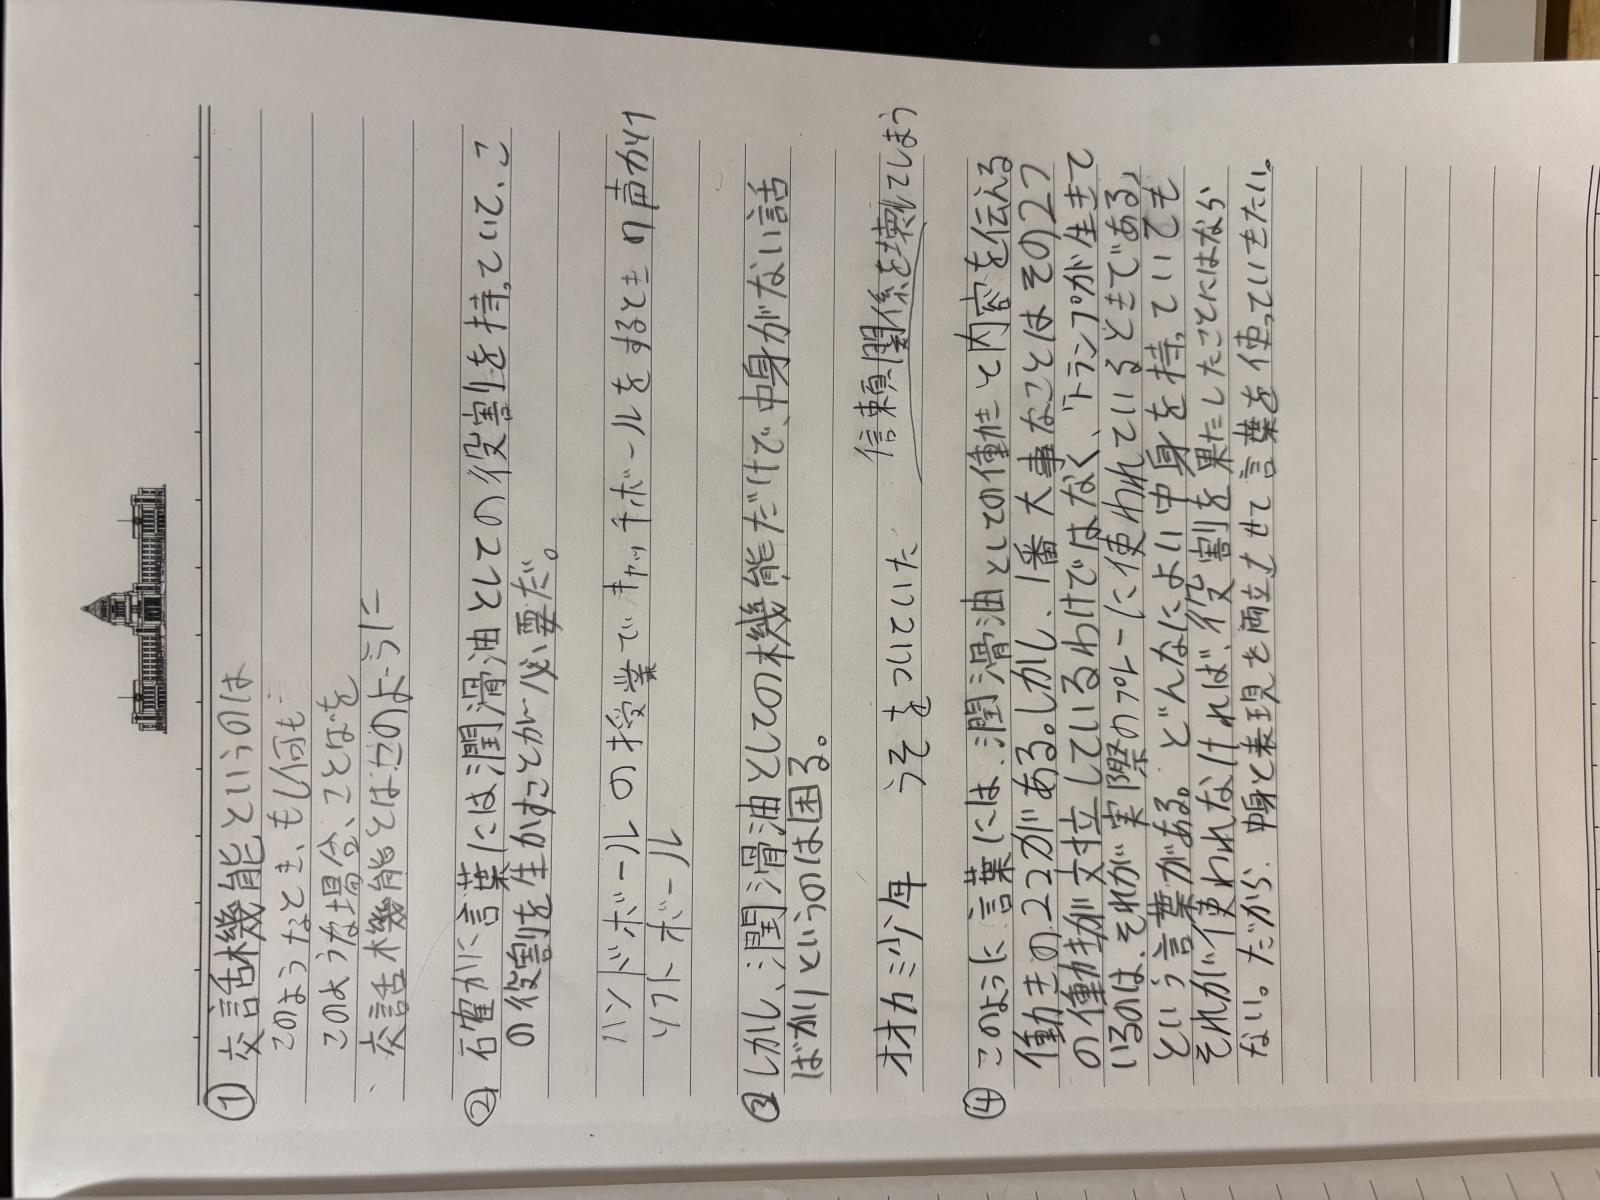 ① 交話機能というのは
このようなとき、もし何も…
このような場合、ことばを
交話機能とは这のように
② 石確かに言葉には潤滑油としての役割を持っていて、こ
の役割を生かすことが必要だ。
ハンドボールの授業でキャッチボールをするときの声かけ
ソフトボール
③ しかし、潤滑油としての機能だけで、中身がない話
ばかりというのは困る。
オオカミ少年 うそをついていた 信頼関係を壊れてしまう
④ このように言葉には、潤滑油としての働きと内容を伝える
働きの2つがある。しかし、1番大事なことはその2つ
の働きが対立しているわけではなく、「トランプが生きて
いるのは、それが実際のプレーに使われているときである」
という言葉がある。どんなによい中身を持っていても
それが使われなければ、役割を果たしたことにはなら
ない。だから、中身と表現を両立させて言葉を使っていきたい。